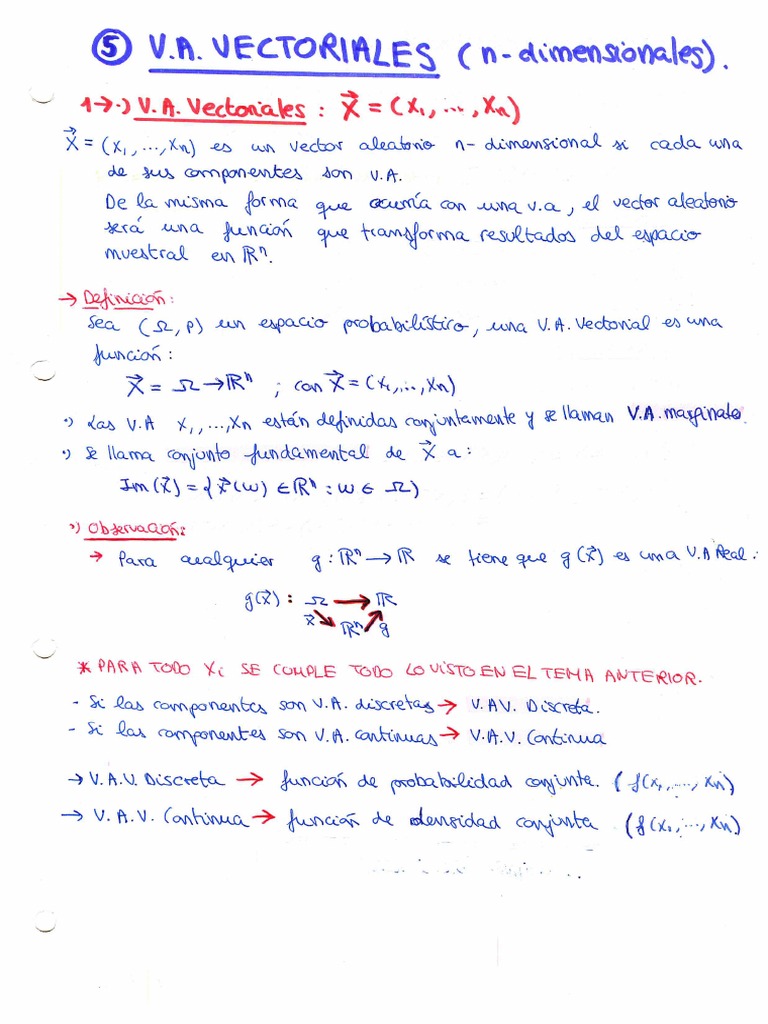 ⑤ V.A. VECTORIALES (n-dimensionales).
1→·) V.A. Vectoriales: X⃗ = (X₁, ..., Xₙ)
X⃗ = (X₁, ..., Xₙ) es un vector aleatorio n-dimensional si cada una
de sus componentes son V.A.
De la misma forma que ocurría con una v.a, el vector aleatorio
será una función que transforma resultados del espacio
muestral en ℝⁿ.
→ Definición:
Sea (Ω, P) un espacio probabilístico, una V.A. Vectorial es una
función:
X⃗ = Ω → ℝⁿ ; con X⃗ = (X₁, ..., Xₙ)
·) Las V.A X₁, ..., Xₙ están definidas conjuntamente y se llaman V.A. marginales.
·) Se llama conjunto fundamental de X⃗ a:
Im(X⃗) = {X⃗(ω) ∈ ℝⁿ : ω ∈ Ω)
·) Observación:
→ Para cualquier g: ℝⁿ → ℝ se tiene que g(X⃗) es una V.A Real:
g(X⃗) : Ω → ℝ
X⃗ ↘ ℝⁿ ↗ g
* PARA TODO Xi SE CUMPLE TODO LO VISTO EN EL TEMA ANTERIOR.
- Si las componentes son V.A. discretas → V.AV. Discreta.
- Si las componentes son V.A. continuas → V.A.V. Continua
→ V.A.V. Discreta → función de probabilidad conjunta. (f(x₁, ..., xₙ)
→ V.A.V. Continua → función de densidad conjunta (f(x₁, ..., xₙ)